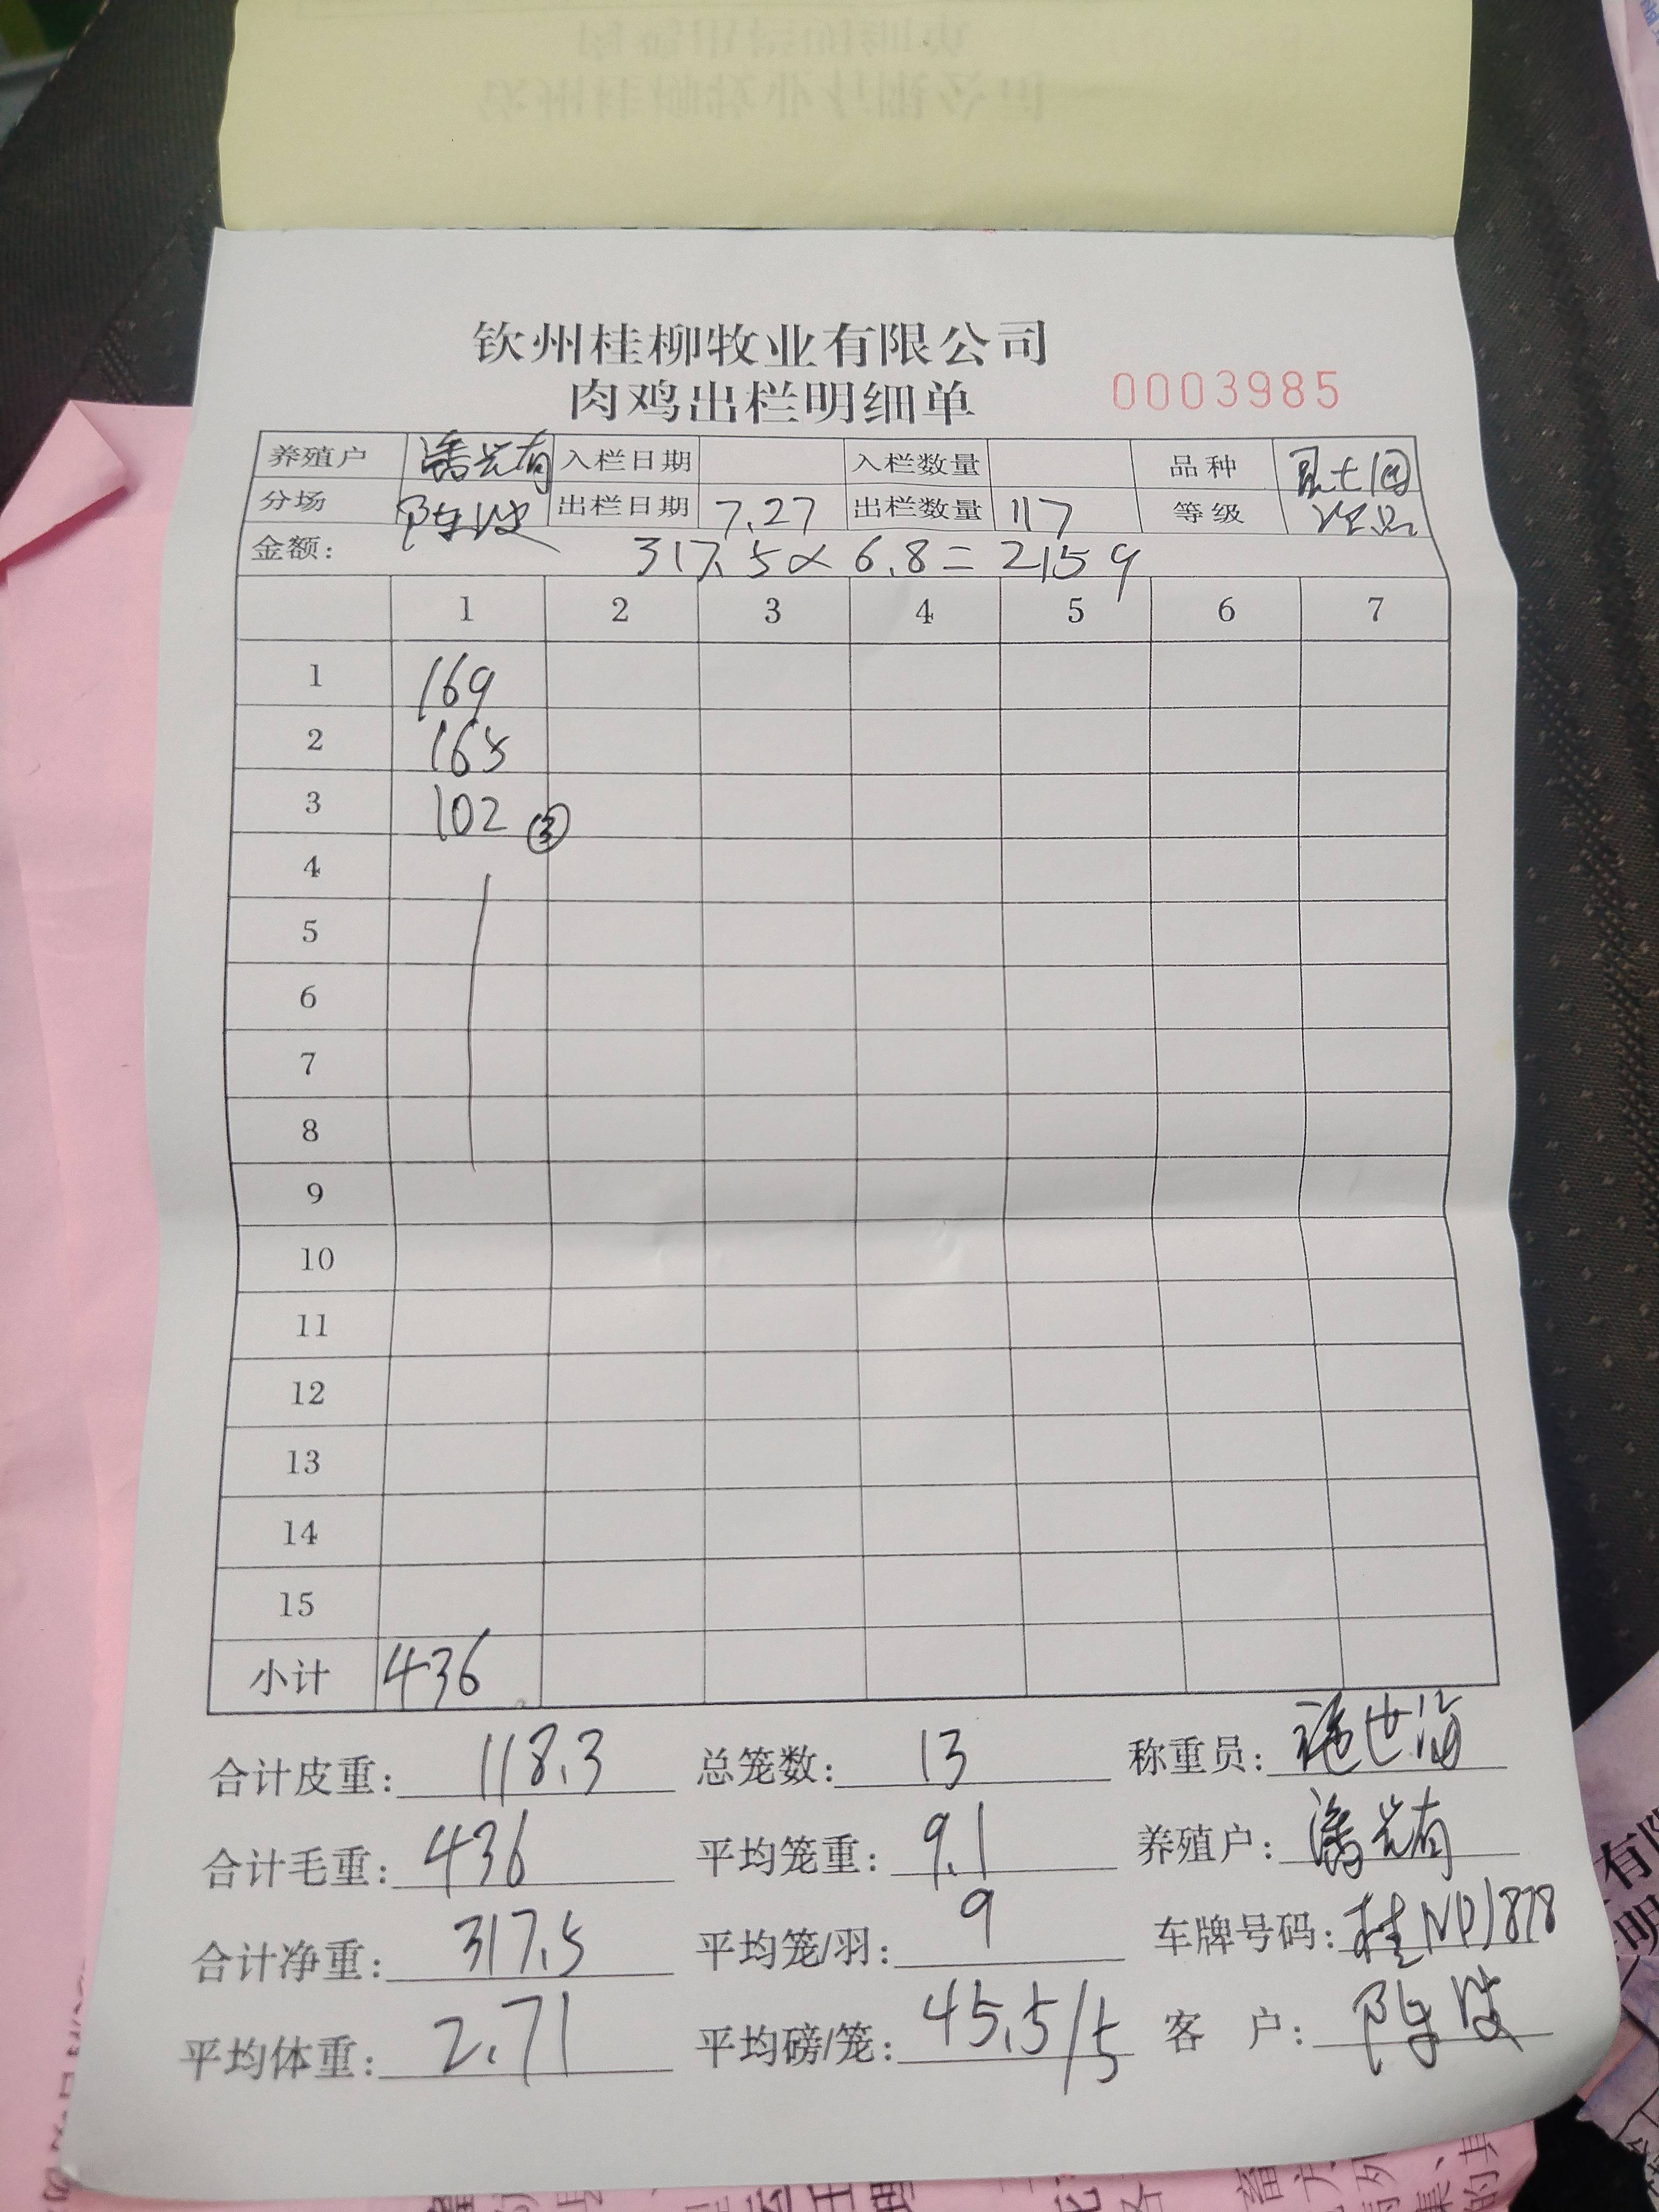 钦州桂柳牧业有限公司
肉鸡出栏明细单 0003985
养殖户 潘光有 入栏日期 入栏数量 品种
分场 出栏日期 7.27 出栏数量 117 等级
金额: 317.5×6.8=2159
1 2 3 4 5 6 7
1 169
2 165
3 102 ③
4
5
6
7
8
9
10
11
12
13
14
15
小计 436
合计皮重: 118.3 总笼数: 13 称重员:
合计毛重: 436 平均笼重: 9.1 养殖户: 潘光有
合计净重: 317.5 平均笼/羽: 9 车牌号码: 桂ND1878
平均体重: 2.71 平均磅/笼: 45.5/5 客 户: